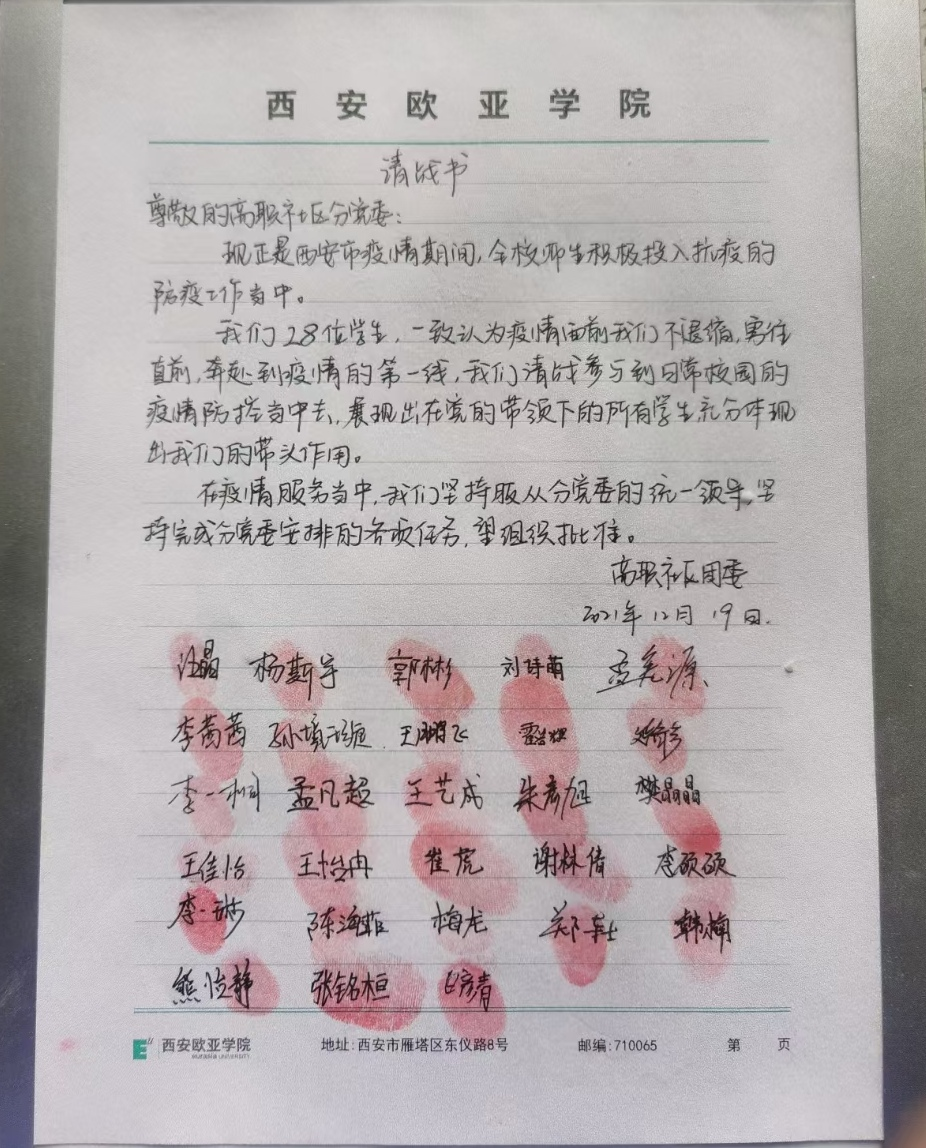 西安欧亚学院
请战书
尊敬的高职社区分党委：
现正是西安市疫情期间，全校师生积极投入抗疫的
防疫工作当中。
我们28位学生，一致认为疫情面前我们不退缩，勇往
直前，奔赴到疫情的第一线，我们请战参与到日常校园的
疫情防控当中去，展现出在党的带领下的所有学生充分体现
出我们的带头作用。
在疫情服务当中，我们坚持服从分党委的统一领导，坚
持完成分党委安排的各项任务，望组织批准。
高职社区团委
2021年12月19日.
汪晶 杨斯宇 郭彬彬 刘诗萌 孟美源
李茜茜 王鹏飞
李一桐 孟凡超 王艺成 朱彦旭 樊晶晶
王佳怡 王怡冉 崔虎 谢林倩 李硕硕
李一琳 陈海菲 梅龙 韩楠
熊怡静 张铭桓
西安欧亚学院
EURASIA UNIVERSITY
地址:西安市雁塔区东仪路8号 邮编:710065 第 页